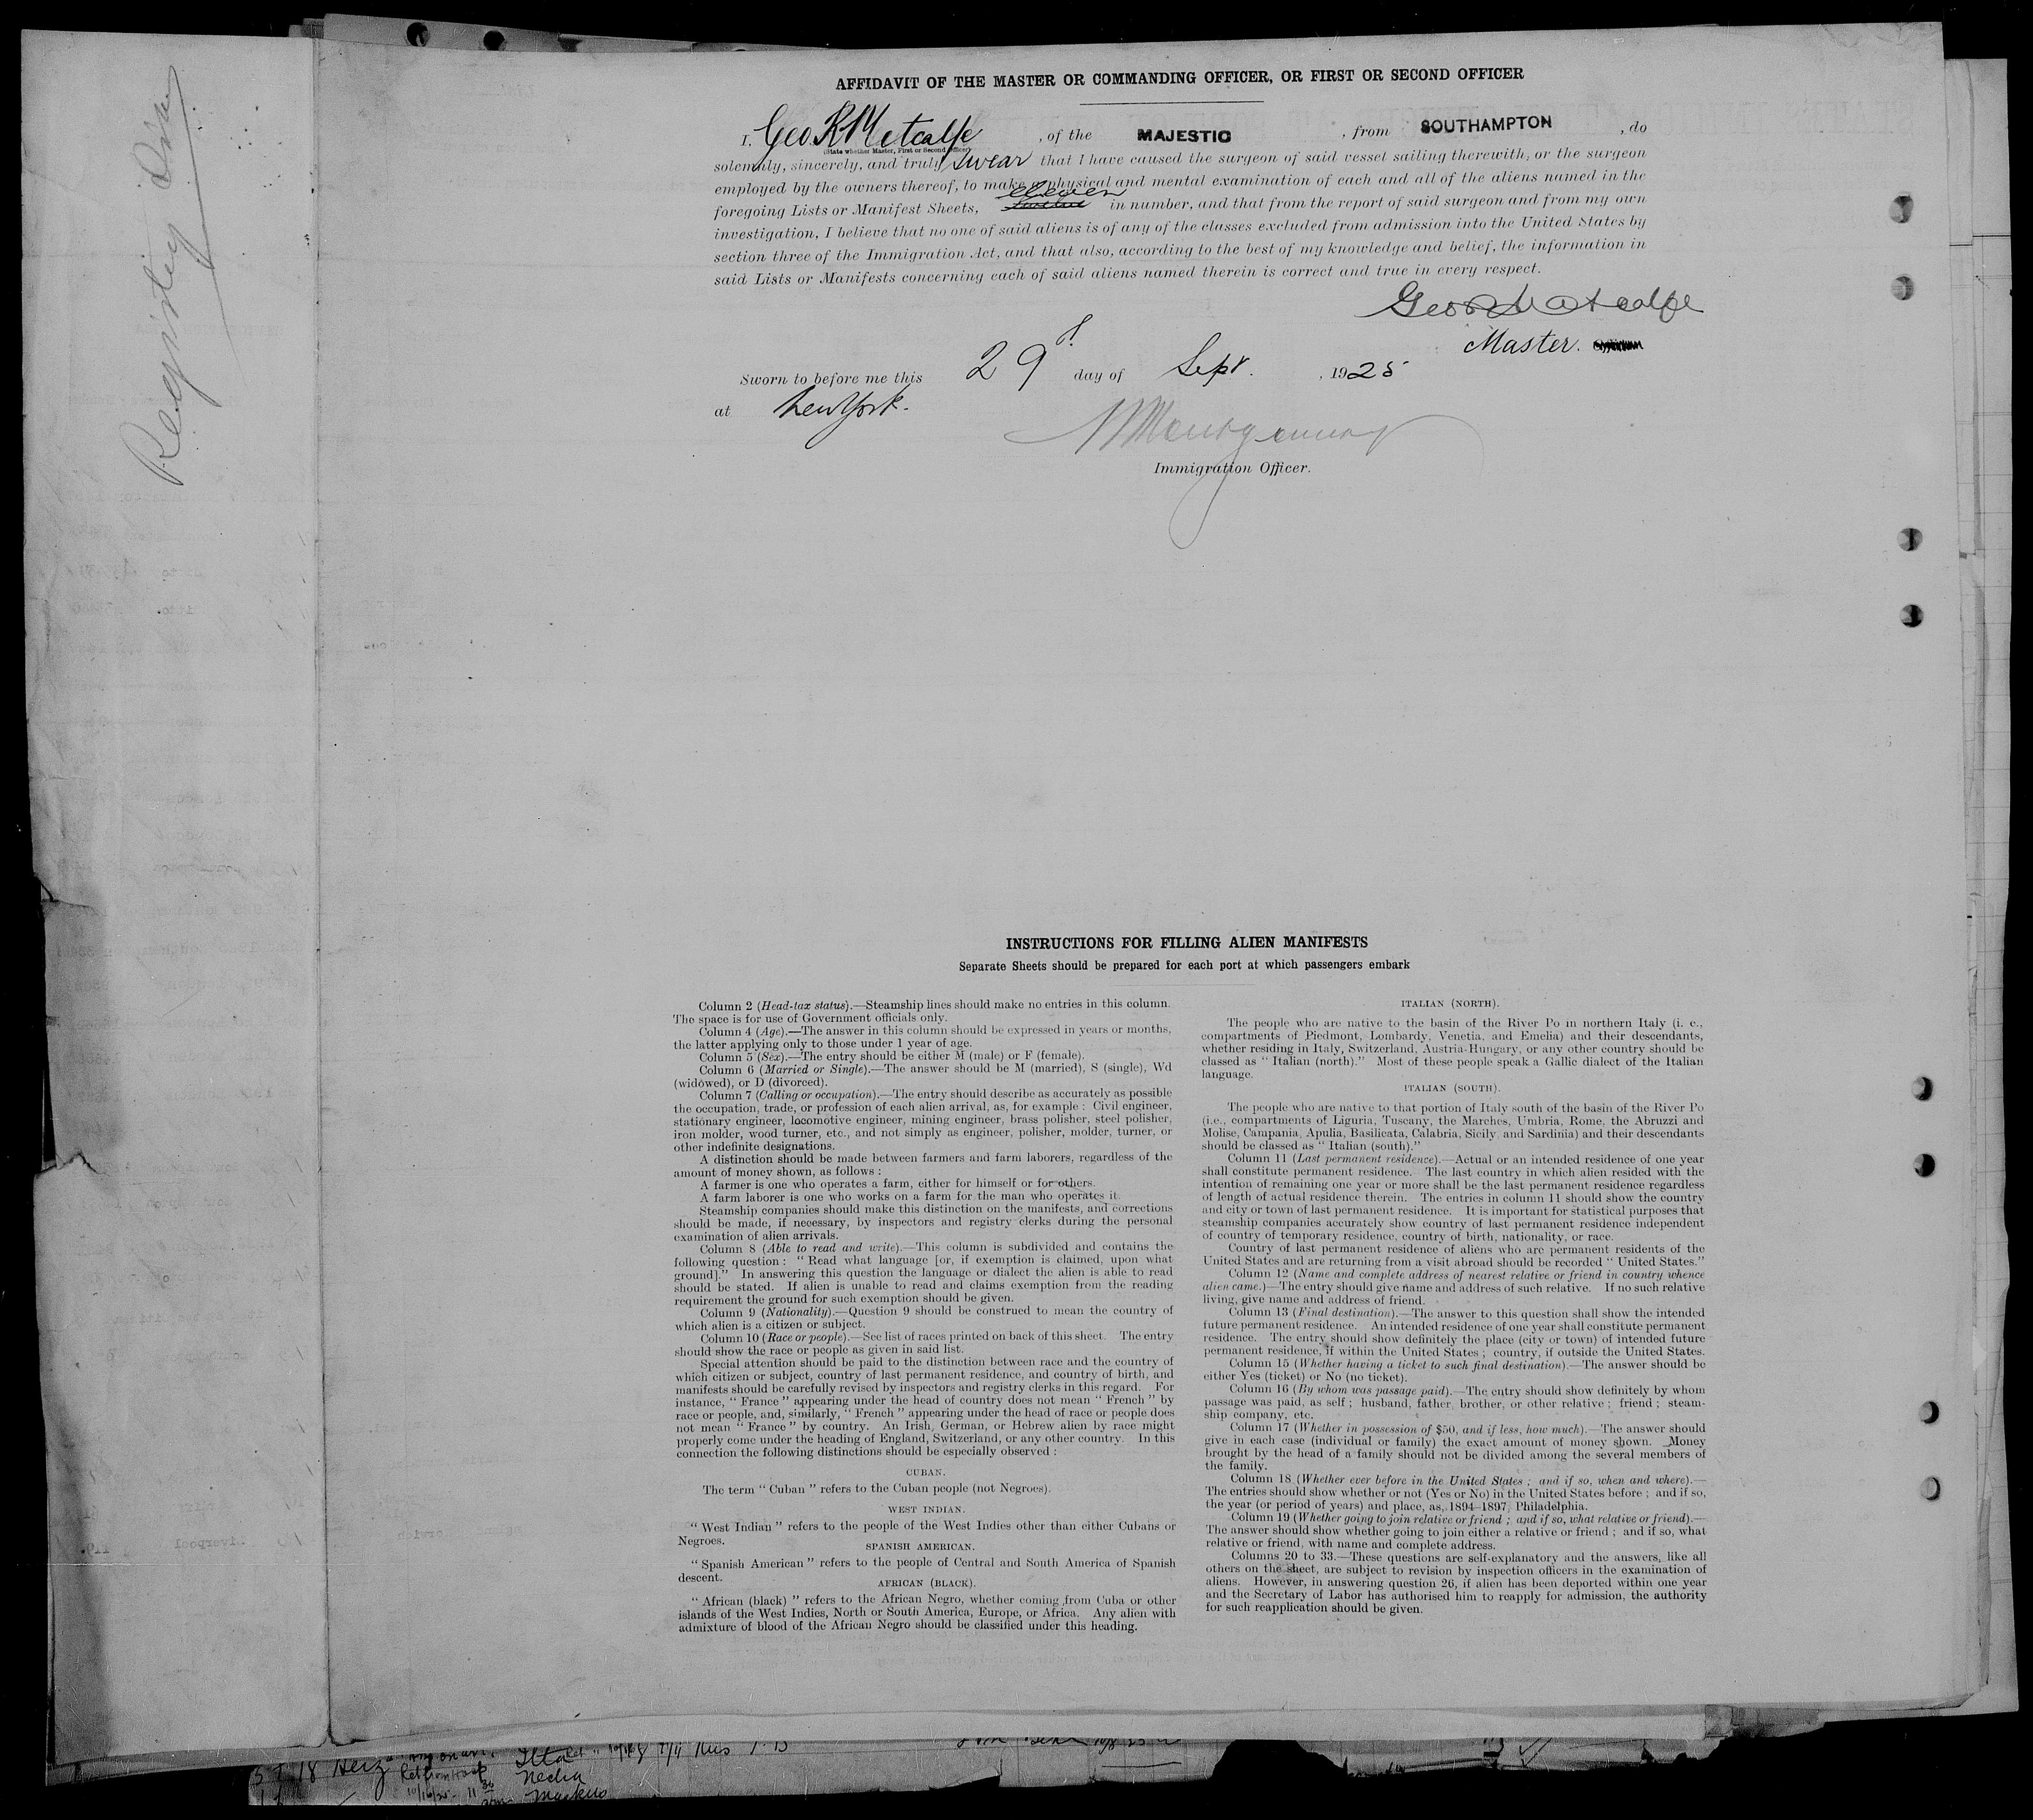 Registry Div
AFFIDAVIT OF THE MASTER OR COMMANDING OFFICER, OR FIRST OR SECOND OFFICER
I, Geo. R Metcalfe, of the MAJESTIC, from SOUTHAMPTON, do
(State whether Master, First or Second Officer)
solemnly, sincerely, and truly swear that I have caused the surgeon of said vessel sailing therewith, or the surgeon
employed by the owners thereof, to make a physical and mental examination of each and all of the aliens named in the
foregoing Lists or Manifest Sheets, eleven in number, and that from the report of said surgeon and from my own
investigation, I believe that no one of said aliens is of any of the classes excluded from admission into the United States by
section three of the Immigration Act, and that also, according to the best of my knowledge and belief, the information in
said Lists or Manifests concerning each of said aliens named therein is correct and true in every respect.
Geo R Metcalfe
Master.
Sworn to before me this 29 day of Sept. , 1925
at New York.
Immigration Officer.
INSTRUCTIONS FOR FILLING ALIEN MANIFESTS
Separate Sheets should be prepared for each port at which passengers embark
Column 2 (Head-tax status).—Steamship lines should make no entries in this column.
The space is for use of Government officials only.
Column 4 (Age).—The answer in this column should be expressed in years or months,
the latter applying only to those under 1 year of age.
Column 5 (Sex).—The entry should be either M (male) or F (female).
Column 6 (Married or Single).—The answer should be M (married), S (single), Wd
(widowed), or D (divorced).
Column 7 (Calling or occupation).—The entry should describe as accurately as possible
the occupation, trade, or profession of each alien arrival, as, for example : Civil engineer,
stationary engineer, locomotive engineer, mining engineer, brass polisher, steel polisher,
iron molder, wood turner, etc., and not simply as engineer, polisher, molder, turner, or
other indefinite designations.
A distinction should be made between farmers and farm laborers, regardless of the
amount of money shown, as follows :
A farmer is one who operates a farm, either for himself or for others.
A farm laborer is one who works on a farm for the man who operates it.
Steamship companies should make this distinction on the manifests, and corrections
should be made, if necessary, by inspectors and registry clerks during the personal
examination of alien arrivals.
Column 8 (Able to read and write).—This column is subdivided and contains the
following question : " Read what language [or, if exemption is claimed, upon what
ground]." In answering this question the language or dialect the alien is able to read
should be stated. If alien is unable to read and claims exemption from the reading
requirement the ground for such exemption should be given.
Column 9 (Nationality).—Question 9 should be construed to mean the country of
which alien is a citizen or subject.
Column 10 (Race or people).—See list of races printed on back of this sheet. The entry
should show the race or people as given in said list.
Special attention should be paid to the distinction between race and the country of
which citizen or subject, country of last permanent residence, and country of birth, and
manifests should be carefully revised by inspectors and registry clerks in this regard. For
instance, " France " appearing under the head of country does not mean " French " by
race or people, and, similarly, " French " appearing under the head of race or people does
not mean " France " by country. An Irish, German, or Hebrew alien by race might
properly come under the heading of England, Switzerland, or any other country. In this
connection the following distinctions should be especially observed :
CUBAN.
The term " Cuban " refers to the Cuban people (not Negroes).
WEST INDIAN.
" West Indian " refers to the people of the West Indies other than either Cubans or
Negroes.
SPANISH AMERICAN.
" Spanish American " refers to the people of Central and South America of Spanish
descent.
AFRICAN (BLACK).
" African (black) " refers to the African Negro, whether coming from Cuba or other
islands of the West Indies, North or South America, Europe, or Africa. Any alien with
admixture of blood of the African Negro should be classified under this heading.
ITALIAN (NORTH).
The people who are native to the basin of the River Po in northern Italy (i. e.,
compartments of Piedmont, Lombardy, Venetia, and Emelia) and their descendants,
whether residing in Italy, Switzerland, Austria-Hungary, or any other country should be
classed as " Italian (north)." Most of these people speak a Gallic dialect of the Italian
language.
ITALIAN (SOUTH).
The people who are native to that portion of Italy south of the basin of the River Po
(i.e., compartments of Liguria, Tuscany, the Marches, Umbria, Rome, the Abruzzi and
Molise, Campania, Apulia, Basilicata, Calabria, Sicily, and Sardinia) and their descendants
should be classed as " Italian (south)."
Column 11 (Last permanent residence).—Actual or an intended residence of one year
shall constitute permanent residence. The last country in which alien resided with the
intention of remaining one year or more shall be the last permanent residence regardless
of length of actual residence therein. The entries in column 11 should show the country
and city or town of last permanent residence. It is important for statistical purposes that
steamship companies accurately show country of last permanent residence independent
of country of temporary residence, country of birth, nationality, or race.
Country of last permanent residence of aliens who are permanent residents of the
United States and are returning from a visit abroad should be recorded " United States."
Column 12 (Name and complete address of nearest relative or friend in country whence
alien came.)—The entry should give name and address of such relative. If no such relative
living, give name and address of friend.
Column 13 (Final destination).—The answer to this question shall show the intended
future permanent residence. An intended residence of one year shall constitute permanent
residence. The entry should show definitely the place (city or town) of intended future
permanent residence, if within the United States ; country, if outside the United States.
Column 15 (Whether having a ticket to such final destination).—The answer should be
either Yes (ticket) or No (no ticket).
Column 16 (By whom was passage paid).—The entry should show definitely by whom
passage was paid, as self ; husband, father, brother, or other relative ; friend ; steam-
ship company, etc.
Column 17 (Whether in possession of $50, and if less, how much).—The answer should
give in each case (individual or family) the exact amount of money shown. Money
brought by the head of a family should not be divided among the several members of
the family.
Column 18 (Whether ever before in the United States ; and if so, when and where).—
The entries should show whether or not (Yes or No) in the United States before ; and if so,
the year (or period of years) and place, as, 1894–1897, Philadelphia.
Column 19 (Whether going to join relative or friend ; and if so, what relative or friend).—
The answer should show whether going to join either a relative or friend ; and if so, what
relative or friend, with name and complete address.
Columns 20 to 33.—These questions are self-explanatory and the answers, like all
others on the sheet, are subject to revision by inspection officers in the examination of
aliens. However, in answering question 26, if alien has been deported within one year
and the Secretary of Labor has authorised him to reapply for admission, the authority
for such reapplication should be given.
18 Herz
Necha
Markus